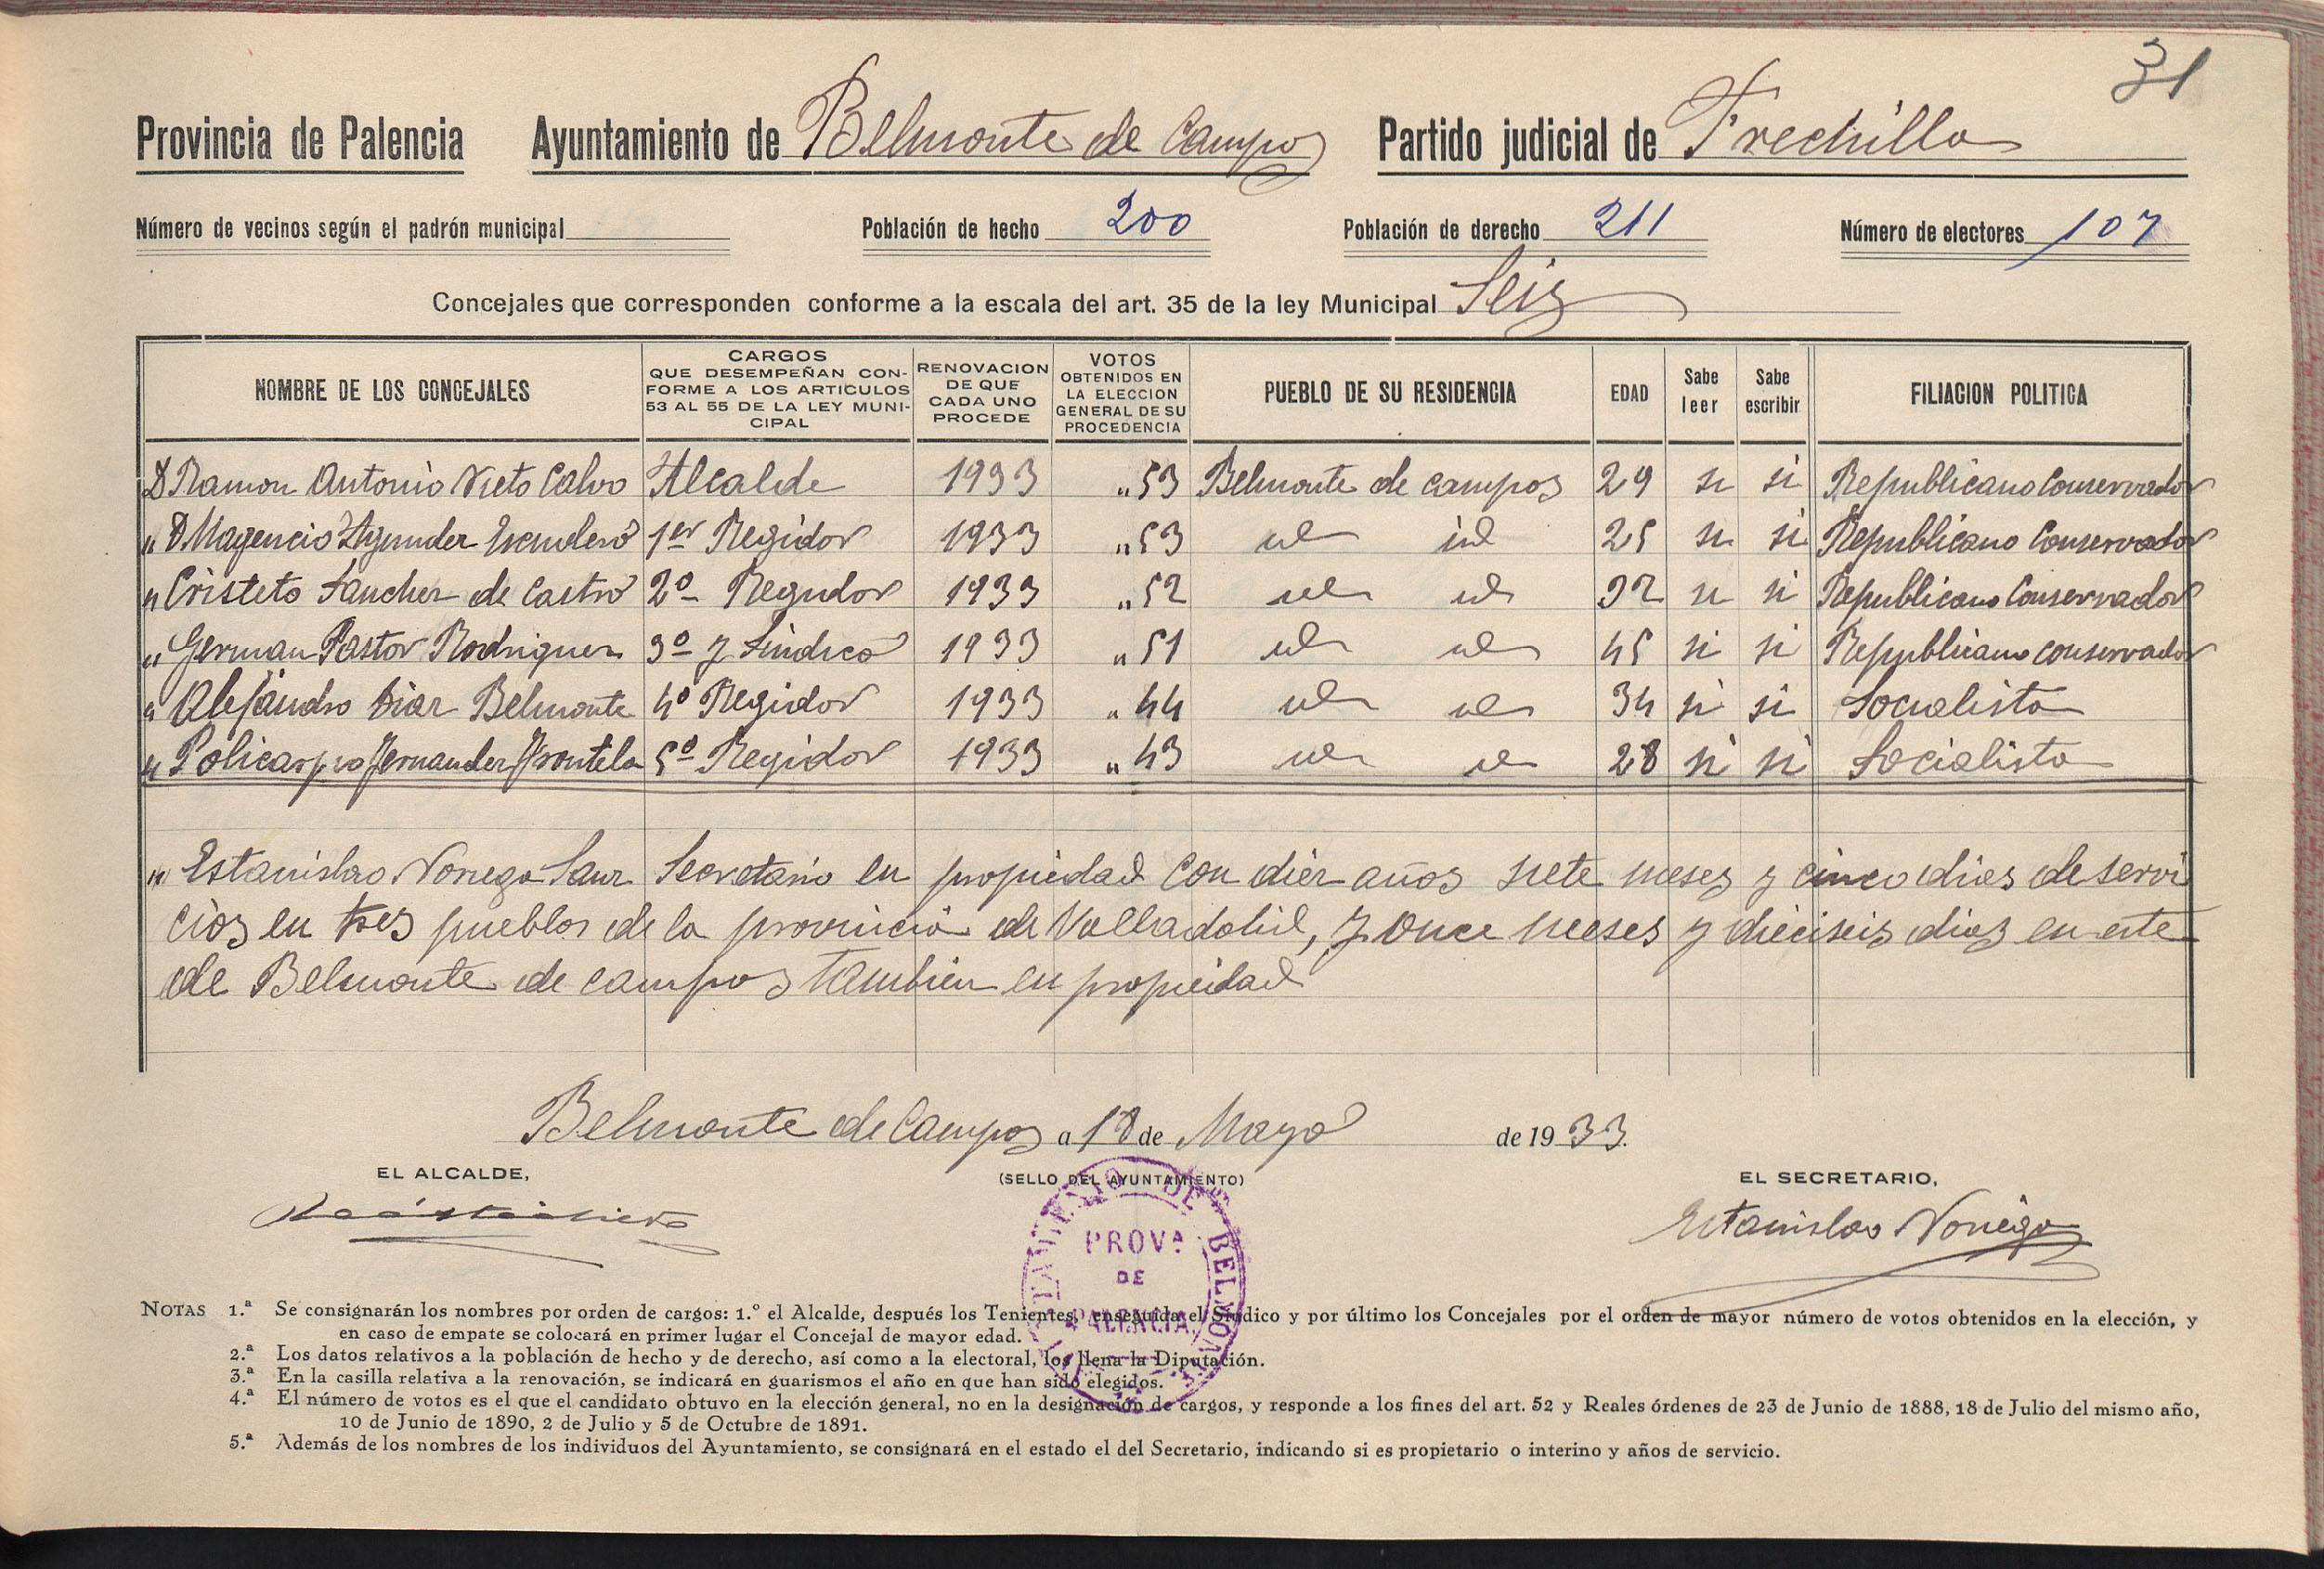 31
Provincia de Palencia Ayuntamiento de Belmonte de Campos Partido judicial de Frechilla
Número de vecinos según el padrón municipal Población de hecho 200 Población de derecho 211 Número de electores 107
Concejales que corresponden conforme a la escala del art. 35 de la ley Municipal Seis
NOMBRE DE LOS CONCEJALES
CARGOS
QUE DESEMPEÑAN CON-
FORME A LOS ARTICULOS
53 AL 55 DE LA LEY MUNI-
CIPAL
RENOVACION
DE QUE
CADA UNO
PROCEDE
VOTOS
OBTENIDOS EN
LA ELECCION
GENERAL DE SU
PROCEDENCIA
PUEBLO DE SU RESIDENCIA
EDAD
Sabe
leer
Sabe
escribir
FILIACION POLITICA
D Ramon Antonio Nieto Calvo Alcalde 1933 "53 Belmonte de campos 29 si si Republicano Conservador
" D. Magencio Agunder Escudero 1er Regidor 1933 "53 id id 25 si si Republicano Conservador
" Cristeto Sanchez de Castro 2º Regidor 1933 "52 id id 32 si si Republicano Conservador
" German Pastor Rodriguez 3º y Sindico 1933 "51 id id 45 si si Republicano conservador
" Alejandro Diaz Belmonte 4º Regidor 1933 "44 id id 34 si si Socialista
" Policarpo Fernandez Frontela 5º Regidor 1933 "43 id id 28 si si Socialista
" Estanislao Noriega Sanz Secretario en propiedad con diez años siete meses y cinco dias de servi
cios en tres pueblos de la provincia de Valladolid, y once meses y dieciseis dias en este
de Belmonte de campos tambien en propiedad
Belmonte de Campos a 18 de Mayo de 1933.
EL ALCALDE, (SELLO DEL AYUNTAMIENTO) EL SECRETARIO,
Estanislao Noriega
AYUNTAMIENTO DE BELMONTE
PROVª
DE
PALENCIA
NOTAS 1.ª Se consignarán los nombres por orden de cargos: 1.º el Alcalde, después los Tenientes, enseguida el Síndico y por último los Concejales por el orden de mayor número de votos obtenidos en la elección, y
en caso de empate se colocará en primer lugar el Concejal de mayor edad.
2.ª Los datos relativos a la población de hecho y de derecho, así como a la electoral, los llena la Diputación.
3.ª En la casilla relativa a la renovación, se indicará en guarismos el año en que han sido elegidos.
4.ª El número de votos es el que el candidato obtuvo en la elección general, no en la designación de cargos, y responde a los fines del art. 52 y Reales órdenes de 23 de Junio de 1888, 18 de Julio del mismo año,
10 de Junio de 1890, 2 de Julio y 5 de Octubre de 1891.
5.ª Además de los nombres de los individuos del Ayuntamiento, se consignará en el estado el del Secretario, indicando si es propietario o interino y años de servicio.